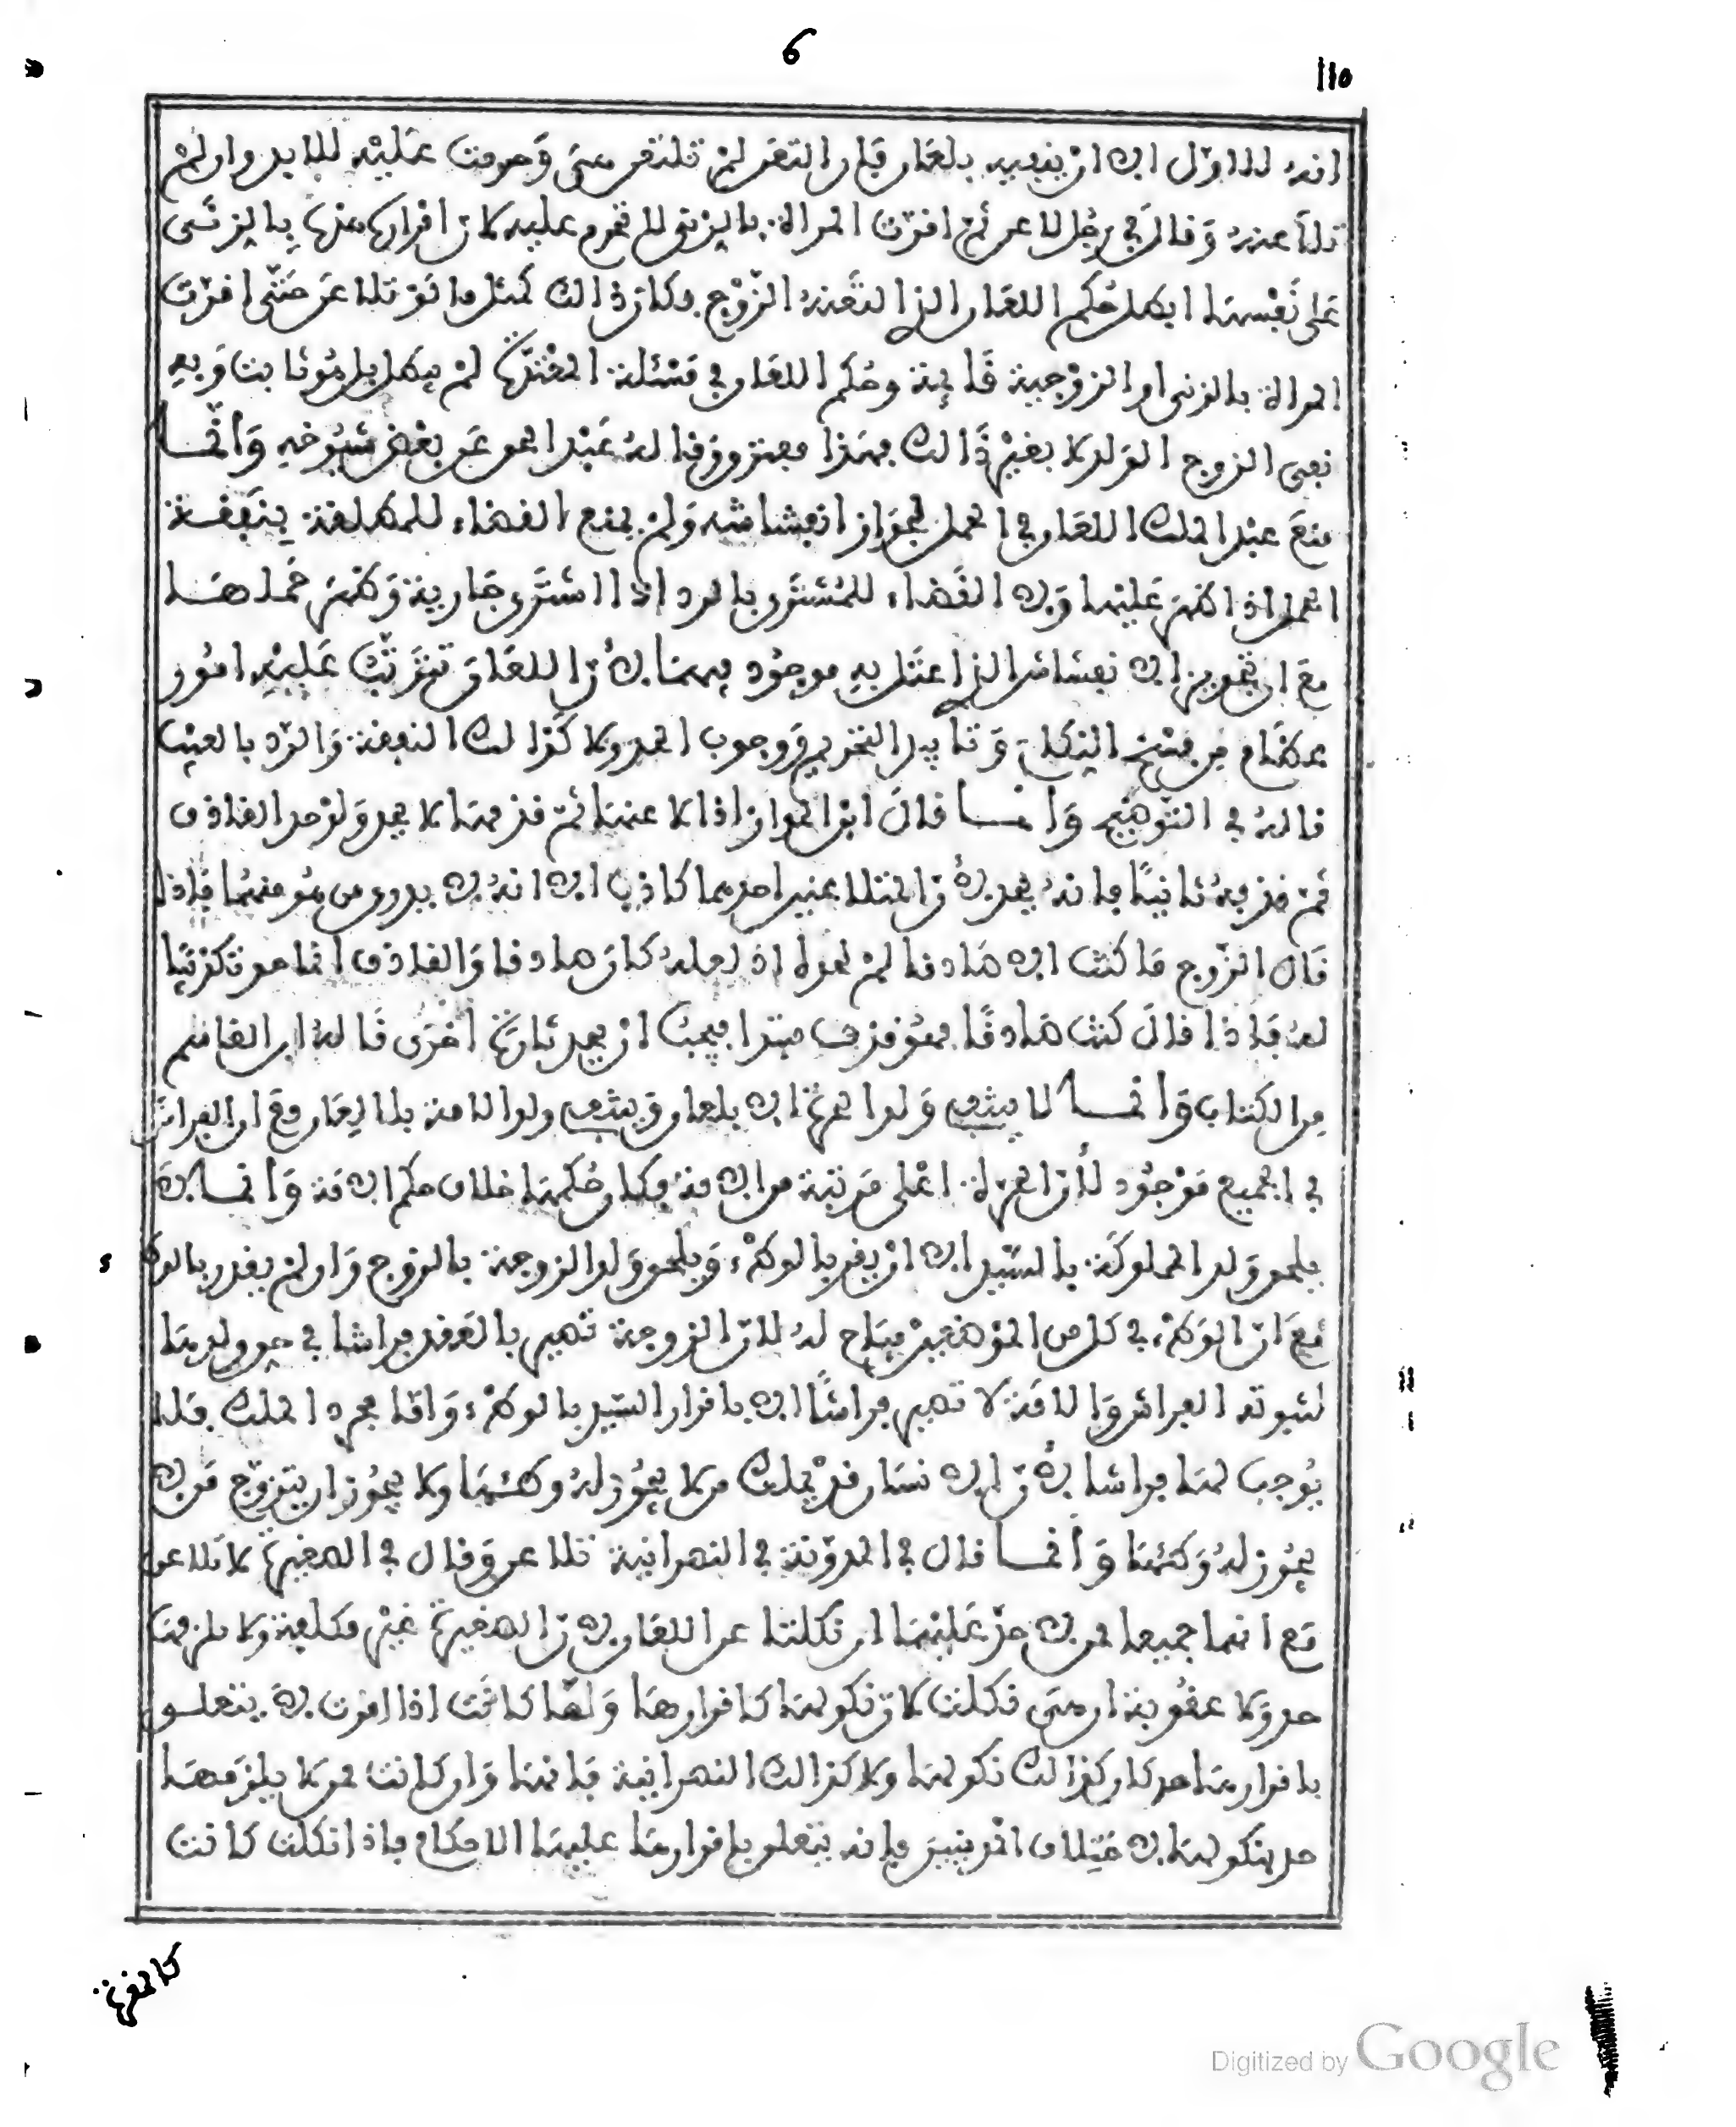 6
110
انه للاول الا ان ينفيه بلعان فان التعن لم تلتعن هي وحرمت عليه للابد وان لم
تلاعنه وقال في رجل لاعن ثم اقرت المراة بالزنى لا تحرم عليه لان اقرارها منها بالزنى
على نفسها ابطل حكم اللعان الذي التعنه الزوج وكان ذالك كمثل ما لو تلاعن حتى اقرت
المراة بالزنى او الزوجية قايمة وحكم اللعان في مسئلة المعتدة لم يبطل بل هو ثابت وبه
نفى الزوج الولد لا بغير ذالك فبهذا يفترق وقاله عبد الحق عن بعض شيوخه وانما
منع عبد الملك اللعان في الحمل لجواز انفشاشه ولم يمنع القضاء للمطلقة بنفقة
الحمل اذا ظهر عليها ولا القضاء للمشتري بالرد اذا اشترى جارية وظهر حملها
مع ان تجويز الانفشاش الذي اعتل به موجود فيهما لان اللعان تترتب عليه امور
عظام من فسخ النكاح وتابيد التحريم ووجوب الحد ولا كذالك النفقة والرد بالعيب
قاله في التوضيح وانما قال ابن المواز اذا لاعنها ثم قذفها لا يحد ولو حد القاذف
ثم قذفه ثانيا فانه يحد لان المتلاعنين احدهما كاذب الا انه لا يدرى من هو منهما فاذا
قال الزوج ما كنت الا صادقا لم يحد اذ لعله كان صادقا والقاذف انما هو تكذيبا
له فاذا قال كنت صادقا فهو قذف مبتدا فيجب ان يحد تارة اخرى قاله ابن القاسم
من الكتاب وانما لا ينتفي ولد الحرة الا بلعان وينتفي ولد الامة بلا لعان مع ان الفراش
في الجميع موجود لان الحرة اعلى مرتبة من الامة فكان حكمها خلاف حكم الامة وانما لا
يلحق ولد المملوكة بالسيد الا ان يقر بالوطء ويلحق ولد الزوجة بالزوج وان لم يقر بالوطء
مع ان الوطء في كل من الموضعين مباح له لان الزوجة تصير بالعقد فراشا في حق ولدها
لثبوته الفراش والامة لا تصير فراشا الا باقرار السيد بالوطء واما مجرد الملك فلا
يوجب لها فراشا لان الانسان قد يملك من لا يجوز له وطئها ولا يجوز ان يتزوج من لا
يجوز له وطئها وانما قال في المدونة في النصرانية تلاعن وقال في الصغيرة لا تلاعن
مع انهما جميعا ممن لا حد عليهما ان نكلتا عن اللعان لان الصغيرة غير مكلفة ولا يلزمها
حد ولا عقوبة ان هي نكلت لان نكولها كاقرارها ولما كانت اذا اقرت لا يتعلق
باقرارها حد كان كذالك نكولها ولا كذالك النصرانية فانها وان كانت ممن لا يلزمها
حد بنكولها لاختلاف الدينين فانه يتعلق باقرارها عليها الاحكام فاذا نكلت كانت
كالمقرة
Digitized by Google